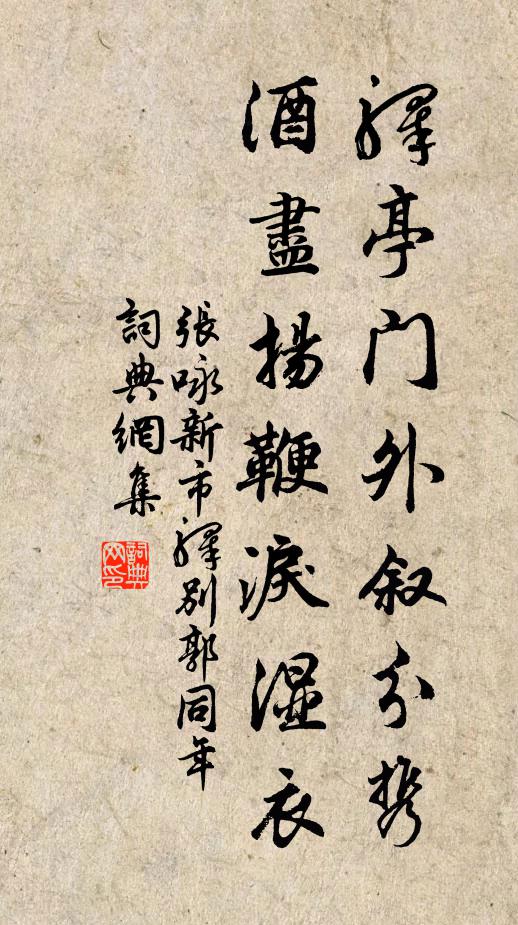 驛亭門外叙分携
酒盡揚鞭淚濕衣
張咏新市驛別郭同年
詞典網集
詞典網印